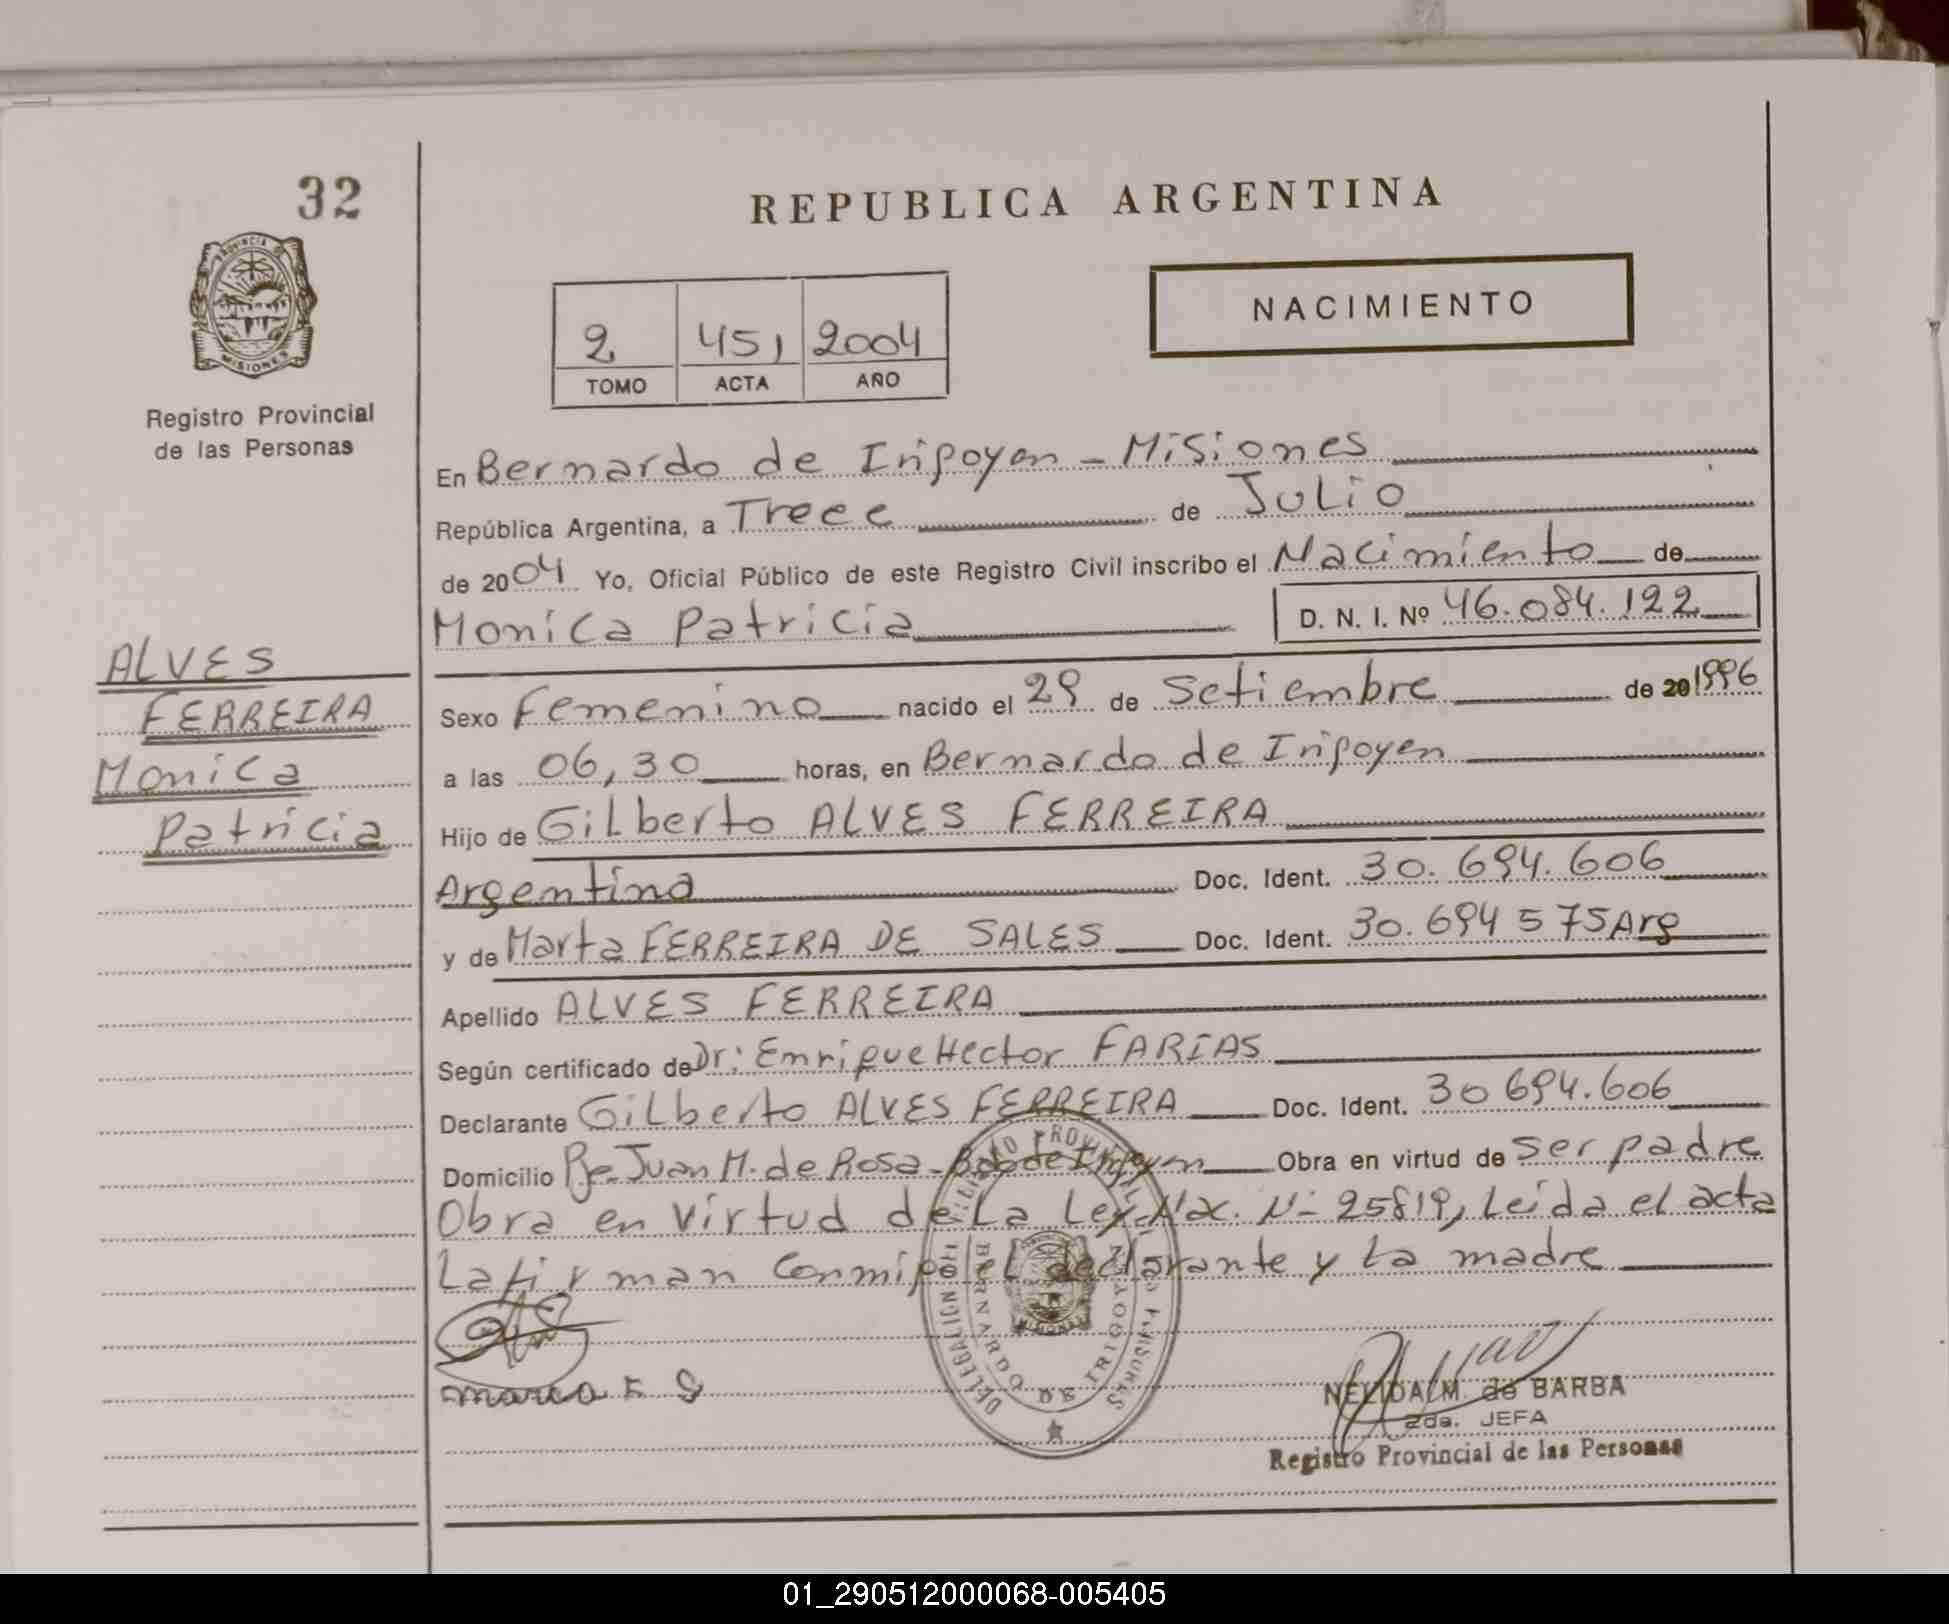 32
REPUBLICA ARGENTINA
PROVINCIA DE
MISIONES
Registro Provincial
de las Personas
NACIMIENTO
2 451 2004
TOMO ACTA AÑO
En Bernardo de Irigoyen - Misiones
República Argentina, a Trece de Julio
de 2004 Yo, Oficial Público de este Registro Civil inscribo el Nacimiento de
Monica Patricia D. N. I. Nº 46.084.122
ALVES
FERREIRA
Monica
Patricia
Sexo Femenino nacido el 29 de Setiembre de 20 1996
a las 06,30 horas, en Bernardo de Irigoyen
Hijo de Gilberto ALVES FERREIRA
Argentina Doc. Ident. 30.694.606
y de Marta FERREIRA DE SALES Doc. Ident. 30.694 575 Arg
Apellido ALVES FERREIRA
Según certificado de Dr: Enrique Hector FARIAS
Declarante Gilberto ALVES FERREIRA Doc. Ident. 30 694.606
Domicilio Pje Juan M. de Rosa - Bdo de Irigoyen Obra en virtud de ser padre
Obra en virtud de La Ley Nac. Nº 25819, Leida el acta
La firman conmigo el declarante y la madre
DELEGACION
BERNARDO DE IRIGOYEN
NELIDA M. de BARBA
2da. JEFA
Registro Provincial de las Personas
01_290512000068-005405